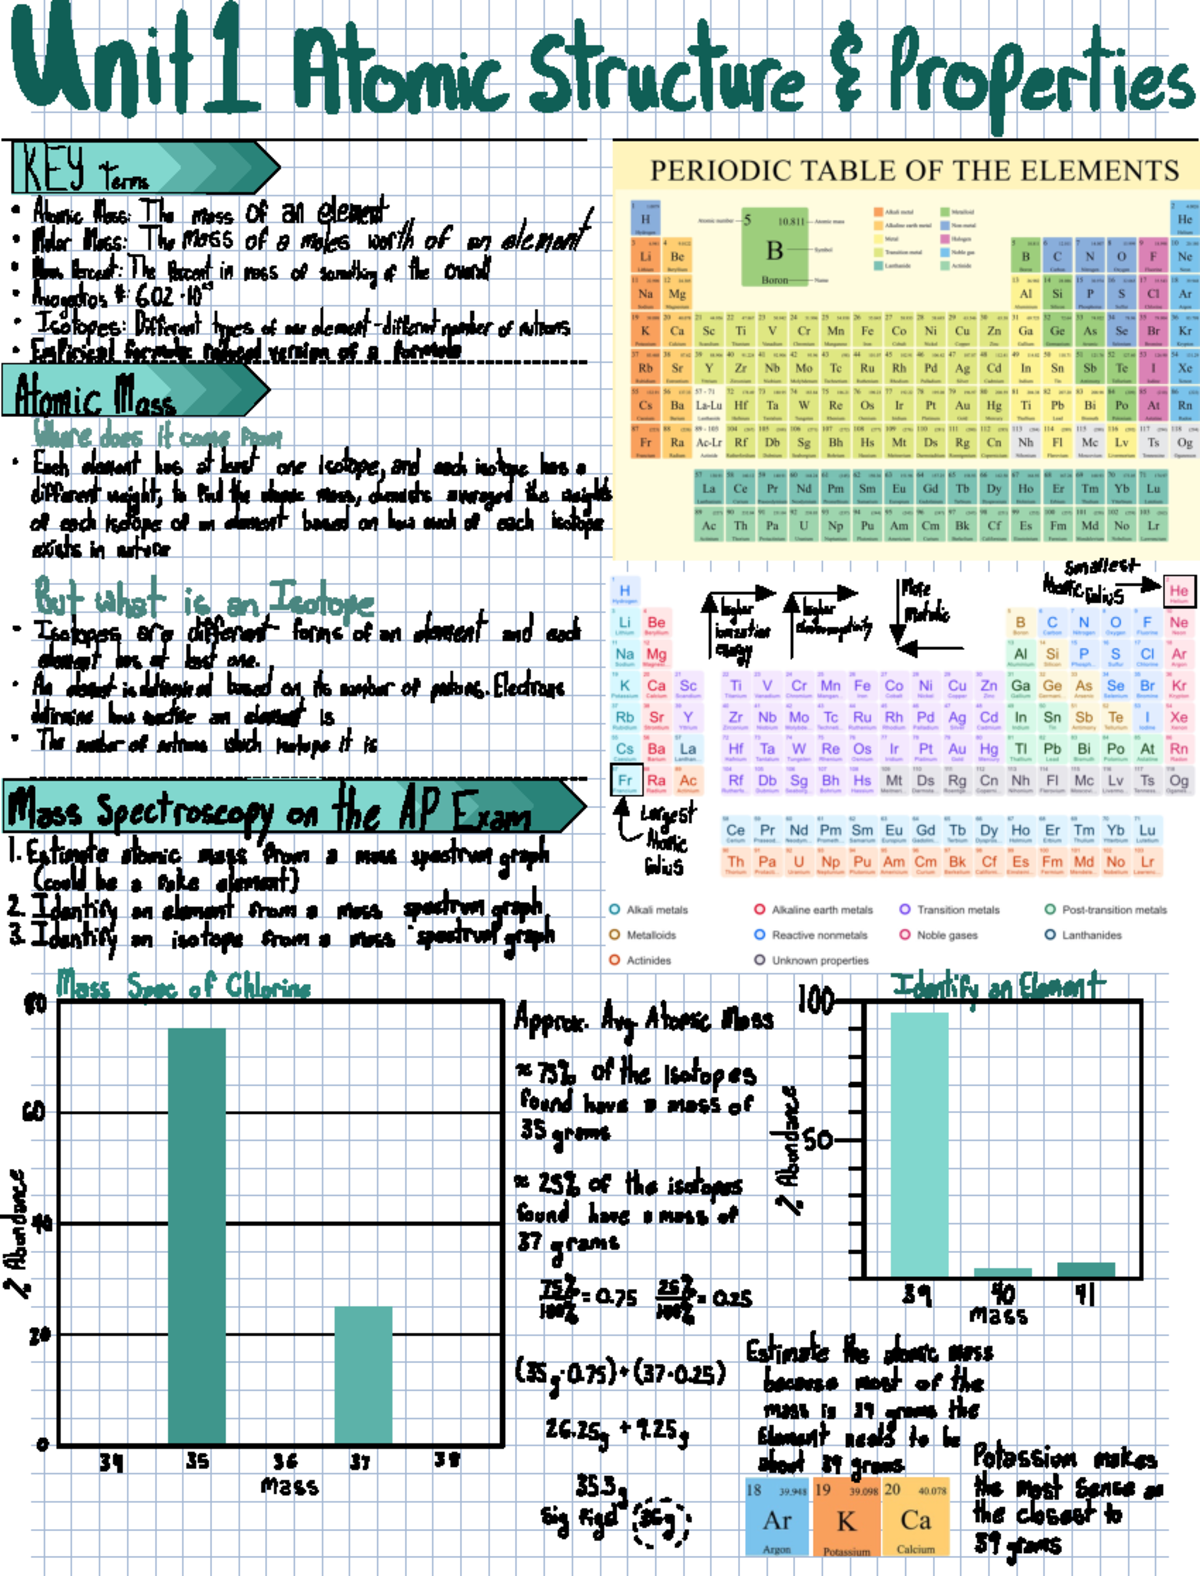 Unit 1 Atomic Structure & Properties
KEY Terms
• Atomic Mass: The mass of an element
• Molar Mass: The mass of a moles worth of an element
• Mass Percent: The Percent in mass of something of the overall
• Avogadro's #: 6.02 · 10²³
• Isotopes: Different types of an element - different number of nutrons
• Empirical formula: reduced version of a formula
Atomic Mass
Where does it come from
• Each element has at least one isotope, and each isotope has a
different weight, to find the atomic mass, chemists averaged the weights
of each isotope of an element based on how much of each isotope
exists in nature
But what is an Isotope
• Isotopes are different forms of an element and each
element has at least one.
• An element is determined based on its number of protons. Electrons
determine how reactive an element is
• The number of nutrons which isotope it is
Mass Spectroscopy on the AP Exam
1. Estimate atomic mass from a mass spectrum graph
(could be a fake element)
2. Identify an element from a mass spectrum graph
3. Identify an isotope from a mass spectrum graph
PERIODIC TABLE OF THE ELEMENTS
Atomic number 5 10.811 Atomic mass
B Symbol
Boron Name
Alkali metal Metalloid
Alkaline earth metal Non-metal
Metal Halogen
Transition metal Noble gas
Lanthanide Actinide
H He
Li Be B C N O F Ne
Na Mg Al Si P S Cl Ar
K Ca Sc Ti V Cr Mn Fe Co Ni Cu Zn Ga Ge As Se Br Kr
Rb Sr Y Zr Nb Mo Tc Ru Rh Pd Ag Cd In Sn Sb Te I Xe
Cs Ba La-Lu Hf Ta W Re Os Ir Pt Au Hg Tl Pb Bi Po At Rn
Fr Ra Ac-Lr Rf Db Sg Bh Hs Mt Ds Rg Cn Nh Fl Mc Lv Ts Og
La Ce Pr Nd Pm Sm Eu Gd Tb Dy Ho Er Tm Yb Lu
Ac Th Pa U Np Pu Am Cm Bk Cf Es Fm Md No Lr
higher
ionization
energy
higher
electronegativity
More
metalic
Smallest
Atomic Radius
H He
Li Be B C N O F Ne
Na Mg Al Si P S Cl Ar
K Ca Sc Ti V Cr Mn Fe Co Ni Cu Zn Ga Ge As Se Br Kr
Rb Sr Y Zr Nb Mo Tc Ru Rh Pd Ag Cd In Sn Sb Te I Xe
Cs Ba La Hf Ta W Re Os Ir Pt Au Hg Tl Pb Bi Po At Rn
Fr Ra Ac Rf Db Sg Bh Hs Mt Ds Rg Cn Nh Fl Mc Lv Ts Og
Ce Pr Nd Pm Sm Eu Gd Tb Dy Ho Er Tm Yb Lu
Th Pa U Np Pu Am Cm Bk Cf Es Fm Md No Lr
Largest
Atomic
Radius
Alkali metals Alkaline earth metals Transition metals Post-transition metals
Metalloids Reactive nonmetals Noble gases Lanthanides
Actinides Unknown properties
Mass Spec of Chlorine
80
60
40
20
0
% Abundance
34 35 36 37 38
Mass
Approx. Avg. Atomic Mass
≈ 75% of the Isotopes
found have a mass of
35 grams
≈ 25% of the isotopes
found have a mass of
37 grams
75%/100% = 0.75 25%/100% = 0.25
(35g·0.75)+(37·0.25)
26.25g + 9.25g
35.5g
Sig figd 36g
Identify an Element
100
50
% Abundance
39 40 41
Mass
Estimate the atomic mass
because most of the
mass is 39 grams the
Element needs to be
about 39 grams
18 39.948 19 39.098 20 40.078
Ar K Ca
Argon Potassium Calcium
Potassium makes
the most Sense as
the closest to
39 grams